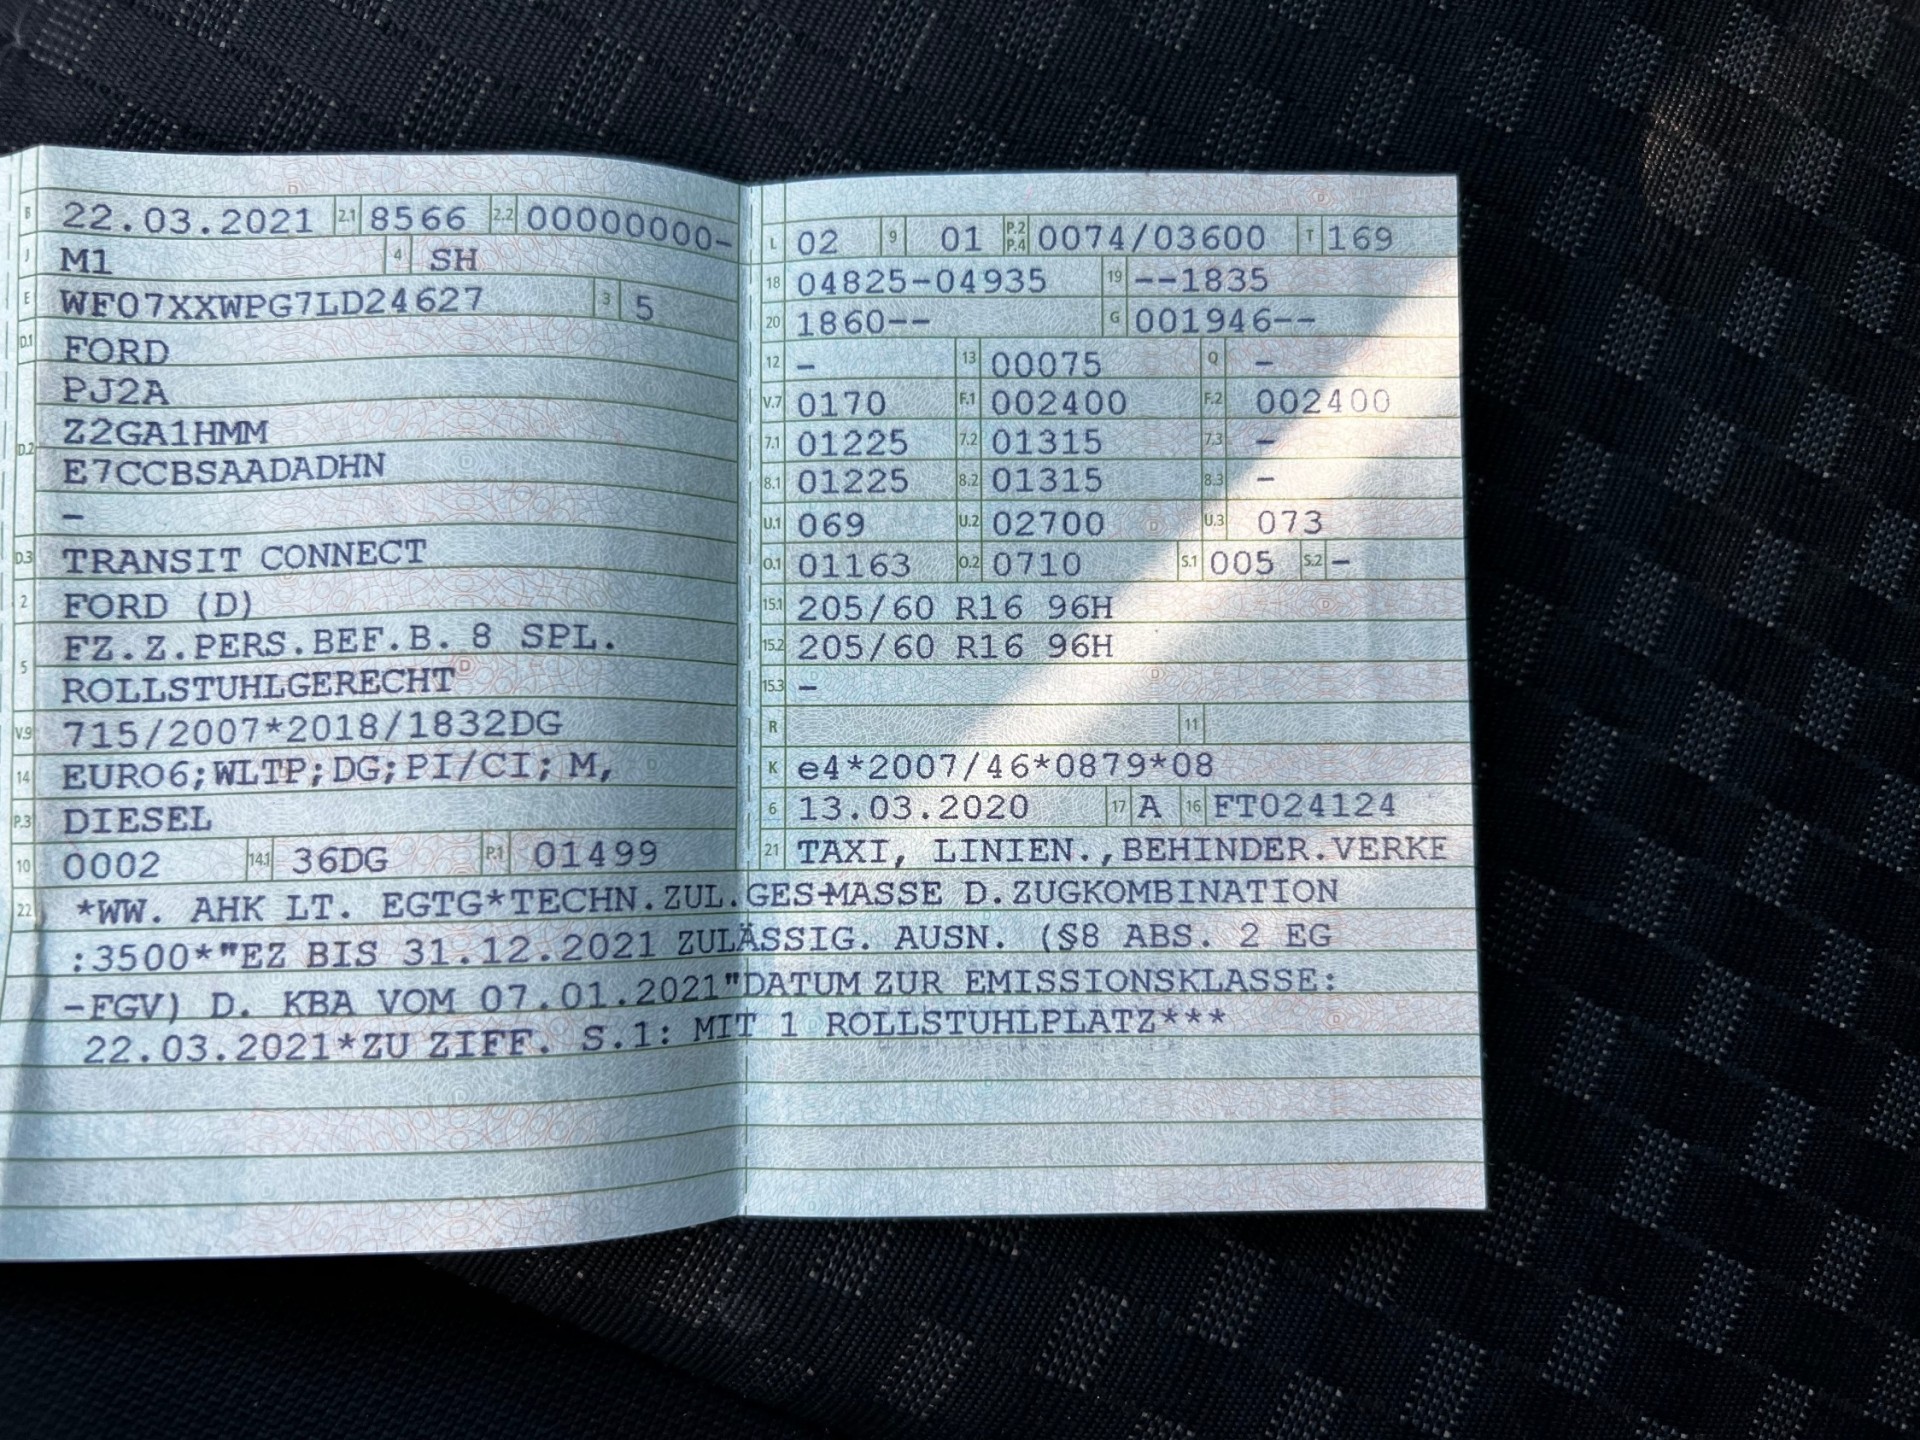 B 22.03.2021 2.1 8566 2.2 00000000-
J M1 4 SH
E WF07XXWPG7LD24627 3 5
D.1 FORD
PJ2A
D.2 Z2GA1HMM
E7CCBSAADADHN
-
D.3 TRANSIT CONNECT
2 FORD (D)
5 FZ.Z.PERS.BEF.B. 8 SPL.
ROLLSTUHLGERECHT
V.9 715/2007*2018/1832DG
14 EURO6;WLTP;DG;PI/CI; M,
P.3 DIESEL
10 0002 14.1 36DG P.1 01499
L 02 9 01 P.2 P.4 0074/03600 T 169
18 04825-04935 19 --1835
20 1860-- G 001946--
12 - 13 00075 Q -
V.7 0170 F.1 002400 F.2 002400
7.1 01225 7.2 01315 7.3 -
8.1 01225 8.2 01315 8.3 -
U.1 069 U.2 02700 U.3 073
O.1 01163 O.2 0710 S.1 005 S.2 -
15.1 205/60 R16 96H
15.2 205/60 R16 96H
15.3 -
R 11
K e4*2007/46*0879*08
6 13.03.2020 17 A 16 FT024124
21 TAXI, LINIEN.,BEHINDER.VERKE
22 *WW. AHK LT. EGTG*TECHN.ZUL.GES-MASSE D.ZUGKOMBINATION
:3500*"EZ BIS 31.12.2021 ZULÄSSIG. AUSN. (§8 ABS. 2 EG
-FGV) D. KBA VOM 07.01.2021"DATUM ZUR EMISSIONSKLASSE:
22.03.2021*ZU ZIFF. S.1: MIT 1 ROLLSTUHLPLATZ***